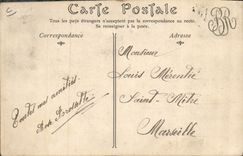 Carte Postale
Tous les pays étrangers n'acceptent pas la correspondance au recto.
Se renseigner à la poste.
Correspondance
Adresse
Toutes mes amitiés
Monsieur
Louis Mérentié
Saint-Mitre
Marseille